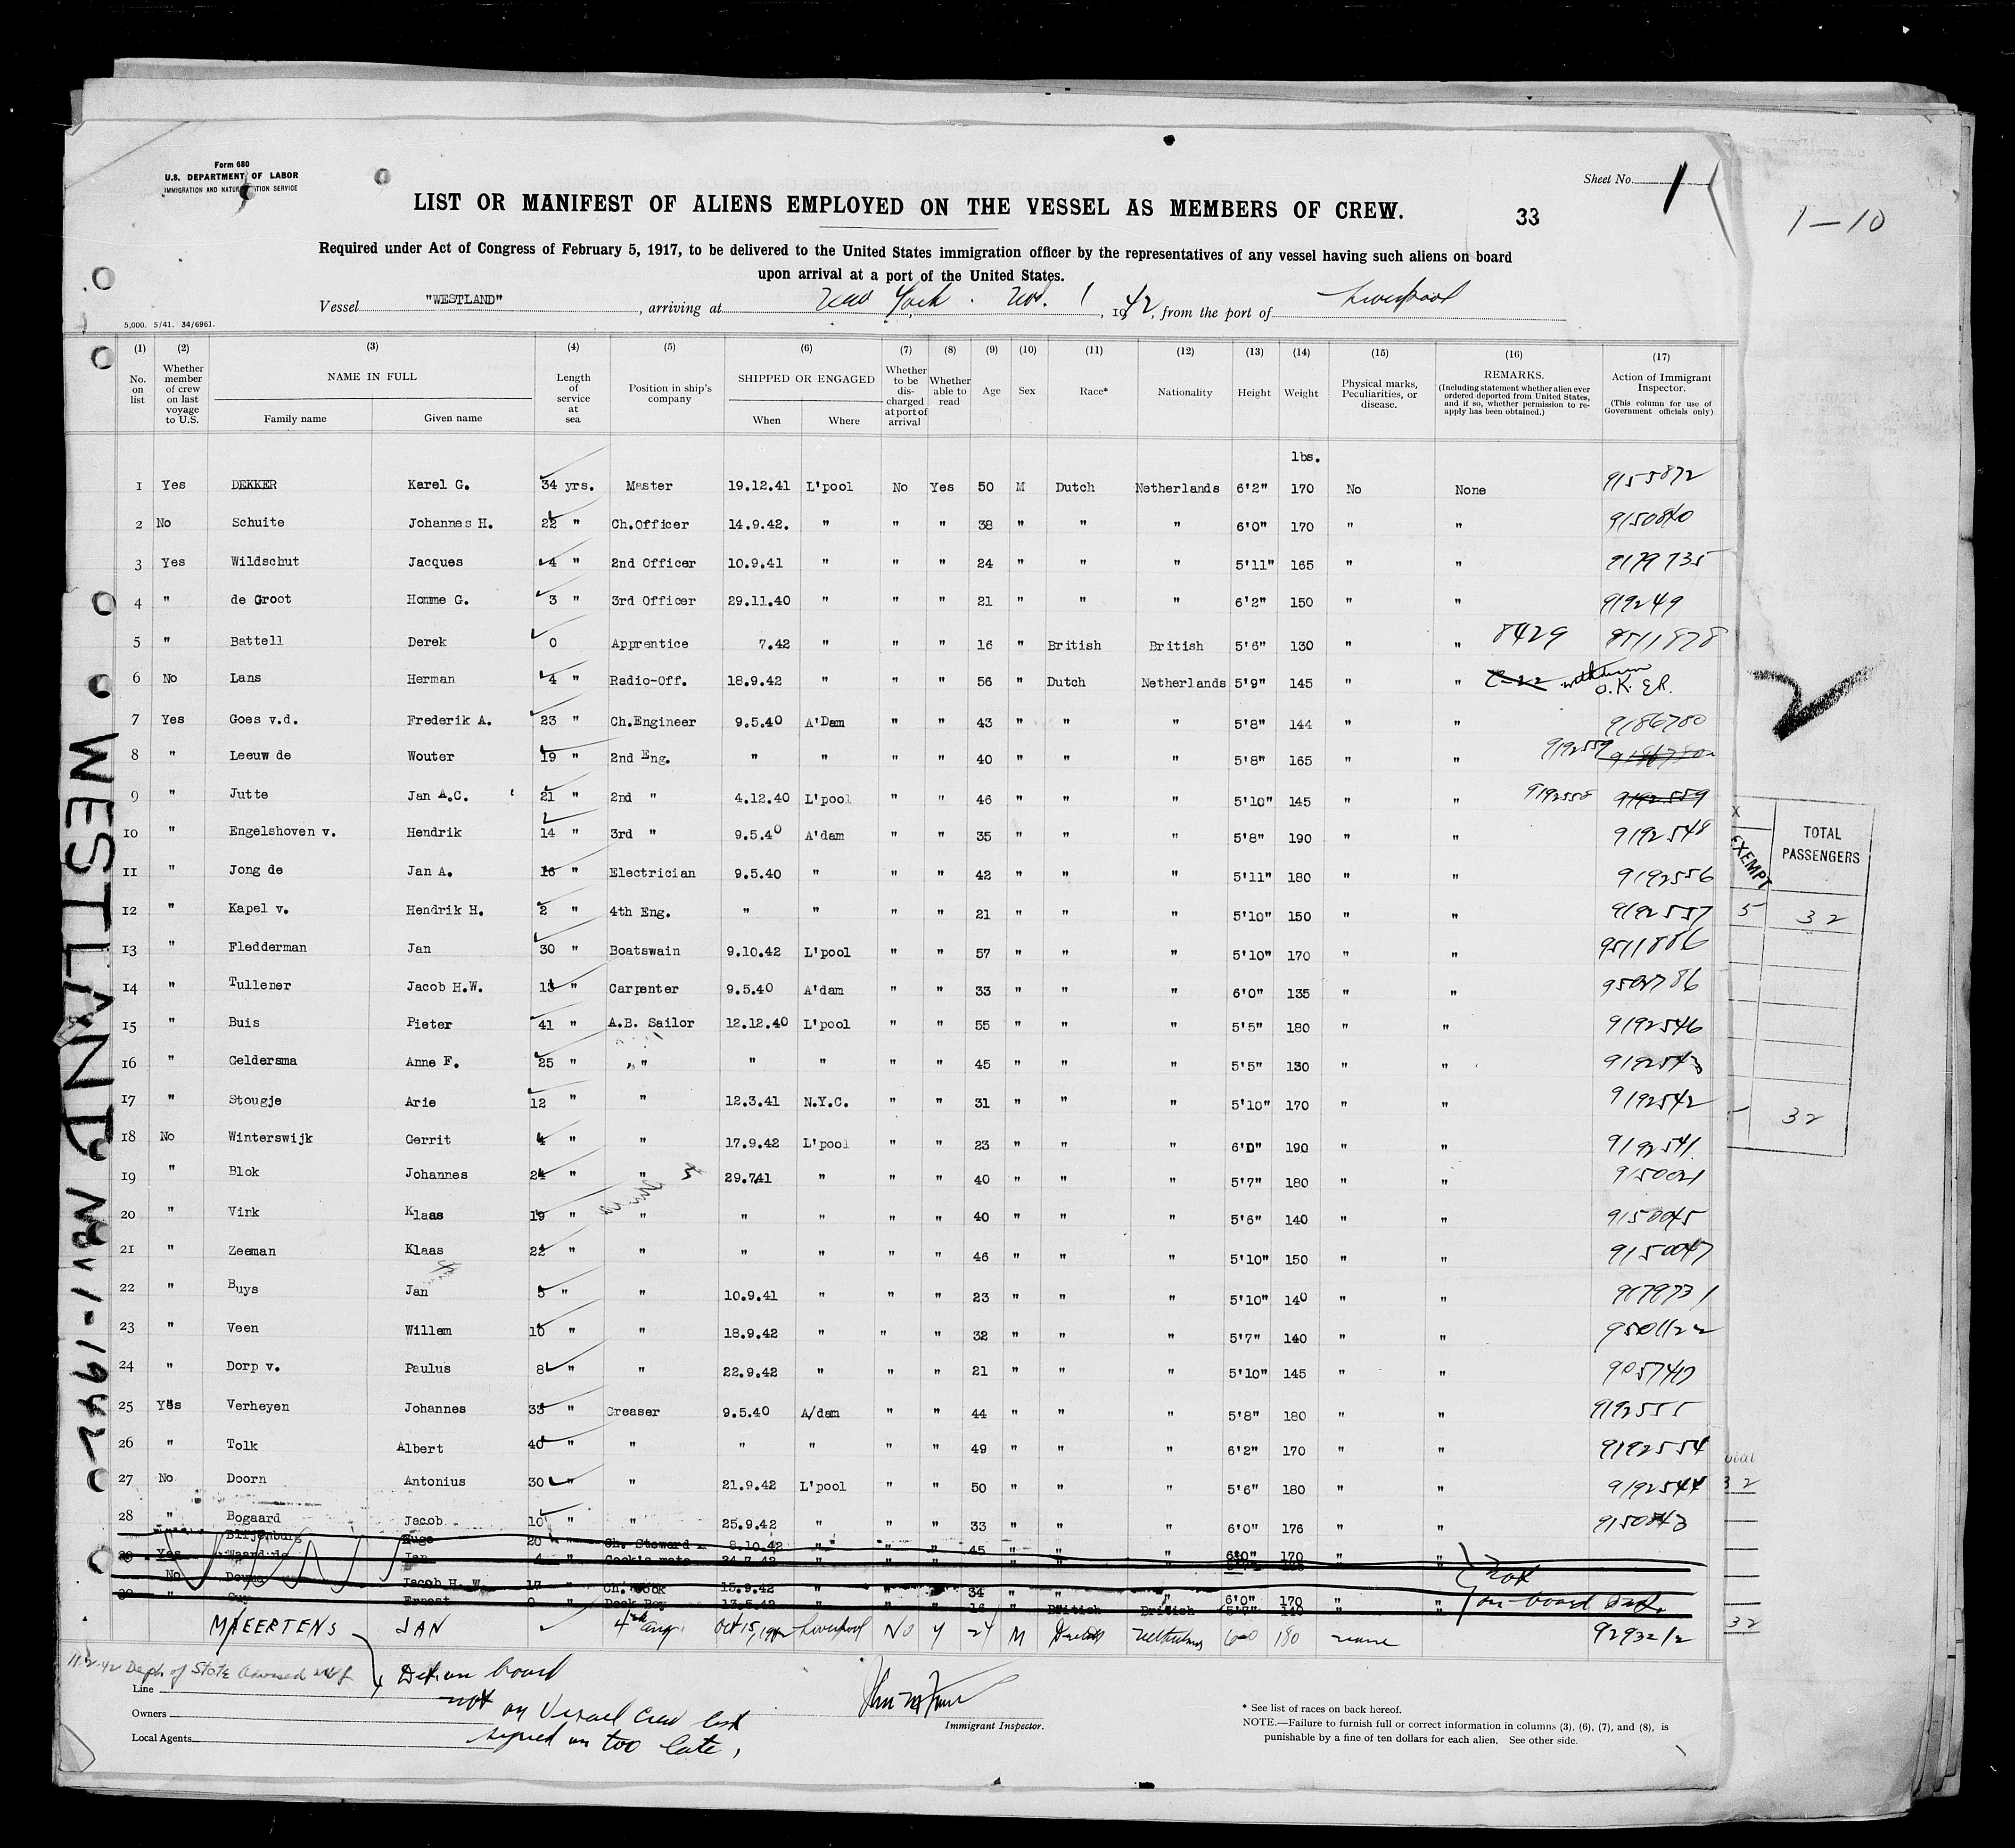 Form 680
U.S. DEPARTMENT OF LABOR
IMMIGRATION AND NATURALIZATION SERVICE
Sheet No. 1
1—10
LIST OR MANIFEST OF ALIENS EMPLOYED ON THE VESSEL AS MEMBERS OF CREW.
33
Required under Act of Congress of February 5, 1917, to be delivered to the United States immigration officer by the representatives of any vessel having such aliens on board
upon arrival at a port of the United States.
Vessel "WESTLAND", arriving at New York. Nov. 1, 1942, from the port of Liverpool
5,000. 5/41. 34/6961.
(1) (2) (3) (4) (5) (6) (7) (8) (9) (10) (11) (12) (13) (14) (15) (16) (17)
No. on list
Whether member of crew on last voyage to U.S.
NAME IN FULL
Family name
Given name
Length of service at sea
Position in ship's company
SHIPPED OR ENGAGED
When
Where
Whether to be discharged at port of arrival
Whether able to read
Age
Sex
Race*
Nationality
Height
Weight
Physical marks, Peculiarities, or disease.
REMARKS.
(Including statement whether alien ever ordered deported from United States, and if so, whether permission to re-apply has been obtained.)
Action of Immigrant Inspector.
(This column for use of Government officials only)
lbs.
1 Yes DEKKER Karel G. 34 yrs. Master 19.12.41 L'pool No Yes 50 M Dutch Netherlands 6'2" 170 No None 9155872
2 No Schuite Johannes H. 22 " Ch.Officer 14.9.42. " " " 38 " " " 6'0" 170 " " 9150840
3 Yes Wildschut Jacques 4 " 2nd Officer 10.9.41 " " " 24 " " " 5'11" 165 " " 9179735
4 " de Groot Homme G. 3 " 3rd Officer 29.11.40 " " " 21 " " " 6'2" 150 " " 919249
5 " Battell Derek 0 Apprentice 7.42 " " " 16 " British British 5'6" 130 " " 8429 9511878
6 No Lans Herman 4 " Radio-Off. 18.9.42 " " " 56 " Dutch Netherlands 5'9" 145 " " O.K.
7 Yes Goes v.d. Frederik A. 23 " Ch.Engineer 9.5.40 A'Dam " " 43 " " " 5'8" 144 " " 9186780
8 " Leeuw de Wouter 19 " 2nd Eng. " " " " 40 " " " 5'8" 165 " " 9192559 9186780
9 " Jutte Jan A.C. 21 " 2nd " 4.12.40 L'pool " " 46 " " " 5'10" 145 " " 9192558 9192559
10 " Engelshoven v. Hendrik 14 " 3rd " 9.5.40 A'dam " " 35 " " " 5'8" 190 " " 9192548
11 " Jong de Jan A. 16 " Electrician 9.5.40 " " " 42 " " " 5'11" 180 " " 9192556
12 " Kapel v. Hendrik H. 2 " 4th Eng. " " " " 21 " " " 5'10" 150 " " 9192557
13 " Fledderman Jan 30 " Boatswain 9.10.42 L'pool " " 57 " " " 5'10" 170 " " 9511886
14 " Tullener Jacob H.W. 13 " Carpenter 9.5.40 A'dam " " 33 " " " 6'0" 135 " "
15 " Buis Pieter 41 " A.B. Sailor 12.12.40 L'pool " " 55 " " " 5'5" 180 " " 9192546
16 " Geldersma Anne F. 25 " " " " " " 45 " " " 5'5" 130 " " 9192543
17 " Stougje Arie 12 " " 12.3.41 N.Y.C. " " 31 " " " 5'10" 170 " " 9192542
18 No Winterswijk Gerrit 4 " " 17.9.42 L'pool " " 23 " " " 6'0" 190 " " 9192541
19 " Blok Johannes 24 " " 29.741 " " " 40 " " " 5'7" 180 " " 9150021
20 " Vink Klaas 19 " " " " " " 40 " " " 5'6" 140 " " 9150045
21 " Zeeman Klaas 22 " " " " " " 46 " " " 5'10" 150 " " 9150047
22 " Buys Jan 5 " " 10.9.41 " " " 23 " " " 5'10" 140 " "
23 " Veen Willem 10 " " 18.9.42 " " " 32 " " " 5'7" 140 " " 9501122
24 " Dorp v. Paulus 8 " " 22.9.42 " " " 21 " " " 5'10" 145 " "
25 Yes Verheyen Johannes 33 " Greaser 9.5.40 A/dam " " 44 " " " 5'8" 180 " " 9192555
26 " Tolk Albert 40 " " " " " " 49 " " " 6'2" 170 " " 9192554
27 No Doorn Antonius 30 " " 21.9.42 L'pool " " 50 " " " 5'6" 180 " " 9192544
28 " Bogaard Jacob 10 " " 25.9.42 " " " 33 " " " 6'0" 176 " " 9150843
Blijenburg Hugo 20 " Ch. Steward 8.10.42 " " " 45 " " " 6'0" 170 "
29 Yes Waard de Jan 4 " Cook's mate 24.7.42 " " " " " "
No Douma Jacob H. W. 17 " Ch. Cook 15.9.42 " " " 34 " " " 6'0" 170 "
30 " Guy Ernest 0 " Deck Boy 13.5.42 " " " 16 " British British 5'7" 140 "
not on board
MAEERTENS JAN 4th Eng. Oct 15, 1942 Liverpool No Y 24 M Dutch Netherlands 6-0 180 none 9293212
11-2-42 Dept. of State advised
Det. on board
not on Vessel Crew list
signed on too late.
Line
Owners
Local Agents
Immigrant Inspector.
* See list of races on back hereof.
NOTE.—Failure to furnish full or correct information in columns (3), (6), (7), and (8), is
punishable by a fine of ten dollars for each alien. See other side.
WESTLAND NOV 1-1942
X
EXEMPT
TOTAL PASSENGERS
5 32
32
32
32